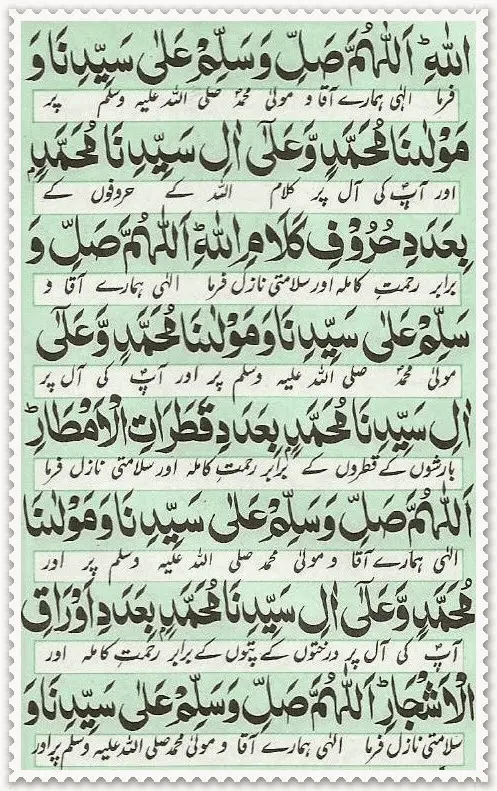 اللهِ ؕ اَللّٰهُمَّ صَلِّ وَسَلِّمْ عَلٰى سَيِّدِنَا وَ
فرما الٰہی ہمارے آقا و مولیٰ محمد صلی اللہ علیہ وسلم پر
مَوْلٰىنَا مُحَمَّدٍ وَّعَلٰٓى اٰلِ سَيِّدِنَا مُحَمَّدٍ
اور آپؐ کی آل پر کلام اللہ کے حروفوں کے
بِعَدَدِ حُرُوْفِ كَلَامِ اللهِ ؕ اَللّٰهُمَّ صَلِّ وَ
برابر رحمتِ کاملہ اور سلامتی نازل فرما الٰہی ہمارے آقا و
سَلِّمْ عَلٰى سَيِّدِنَا وَمَوْلٰىنَا مُحَمَّدٍ وَّعَلٰٓى
مولیٰ محمدؐ صلی اللہ علیہ وسلم پر اور آپؐ کی آل پر
اٰلِ سَيِّدِنَا مُحَمَّدٍ بِعَدَدِ قَطَرَاتِ الْاَمْطَارِ ؕ
بارشوں کے قطروں کے برابر رحمتِ کاملہ اور سلامتی نازل فرما
اَللّٰهُمَّ صَلِّ وَسَلِّمْ عَلٰى سَيِّدِنَا وَمَوْلٰىنَا
الٰہی ہمارے آقا و مولیٰ محمد صلی اللہ علیہ وسلم پر اور
مُحَمَّدٍ وَّعَلٰٓى اٰلِ سَيِّدِنَا مُحَمَّدٍ بِعَدَدِ اَوْرَاقِ
آپؐ کی آل پر درختوں کے پتوں کے برابر رحمتِ کاملہ اور
الْاَشْجَارِ ؕ اَللّٰهُمَّ صَلِّ وَسَلِّمْ عَلٰى سَيِّدِنَا وَ
سلامتی نازل فرما الٰہی ہمارے آقا و مولیٰ محمد صلی اللہ علیہ وسلم پر اور